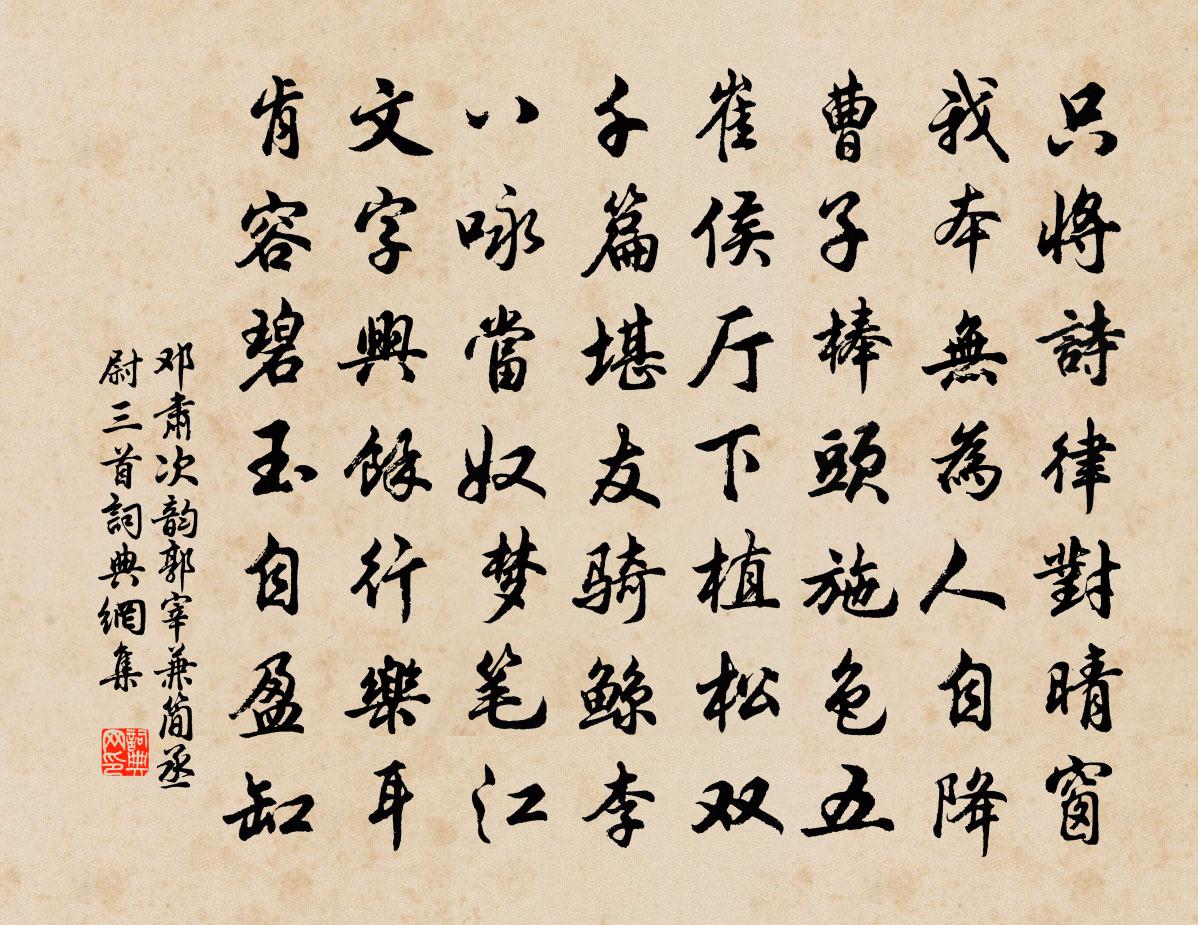 只將詩律對晴窗
我本無為人自降
曹子棒頭施色五
崔侯厅下植松双
千篇堪友骑鲸李
八咏當奴梦笔江
文字興餘行樂耳
肯容碧玉自盈缸
邓肅次韵郭宰兼简丞
尉三首詞典網集
詞典
网印